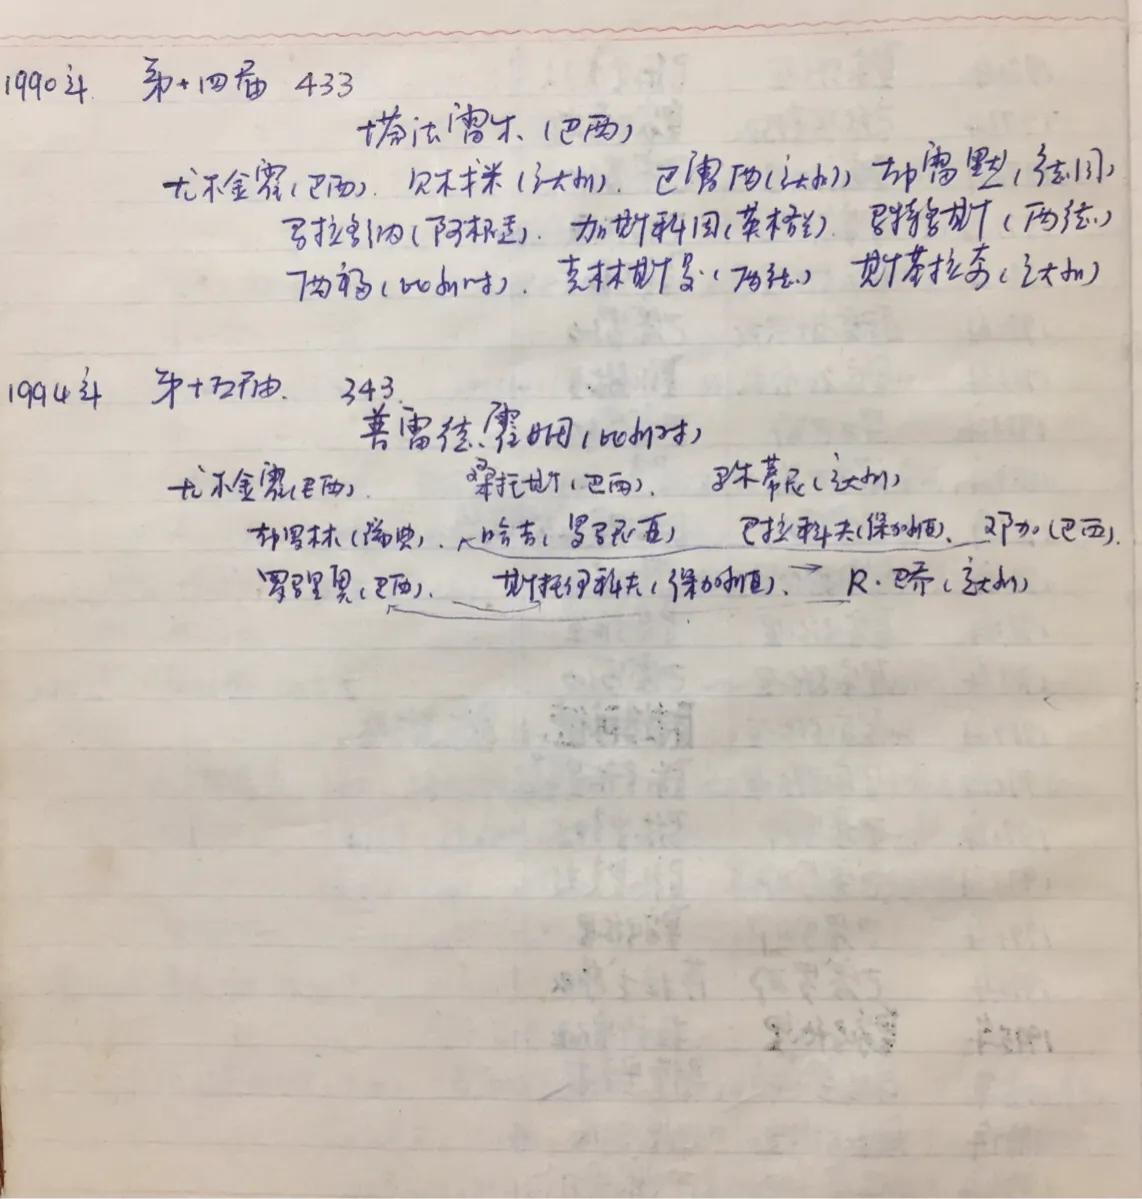 1990年 第十四届 433
塔法雷尔(巴西)
尤尔金霍(巴西). 贝尔戈米(意大利). 巴雷西(意大利), 布雷默(德国)
马拉多纳(阿根廷). 加斯科因(英格兰). 马特乌斯(西德)
西福(比利时). 克林斯曼(西德) 斯基拉奇(意大利)
1994年 第十五届. 343.
普雷德霍姆(比利时)
尤尔金霍(巴西). 桑托斯(巴西). 马尔蒂尼(意大利)
布罗林(瑞典). 哈吉(罗马尼亚) 巴拉科夫(保加利亚). 邓加(巴西).
罗马里奥(巴西). 斯托伊科夫(保加利亚). R.巴乔(意大利)